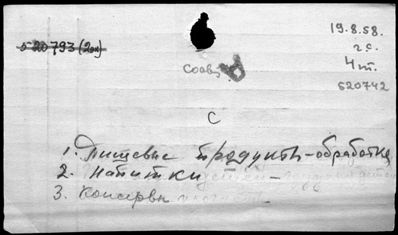 520793 (2эк)
19.8.58.
г.с.
4т.
520742
С
1. Пищевые продукты-обработка
2. Напитки
3. Консервы